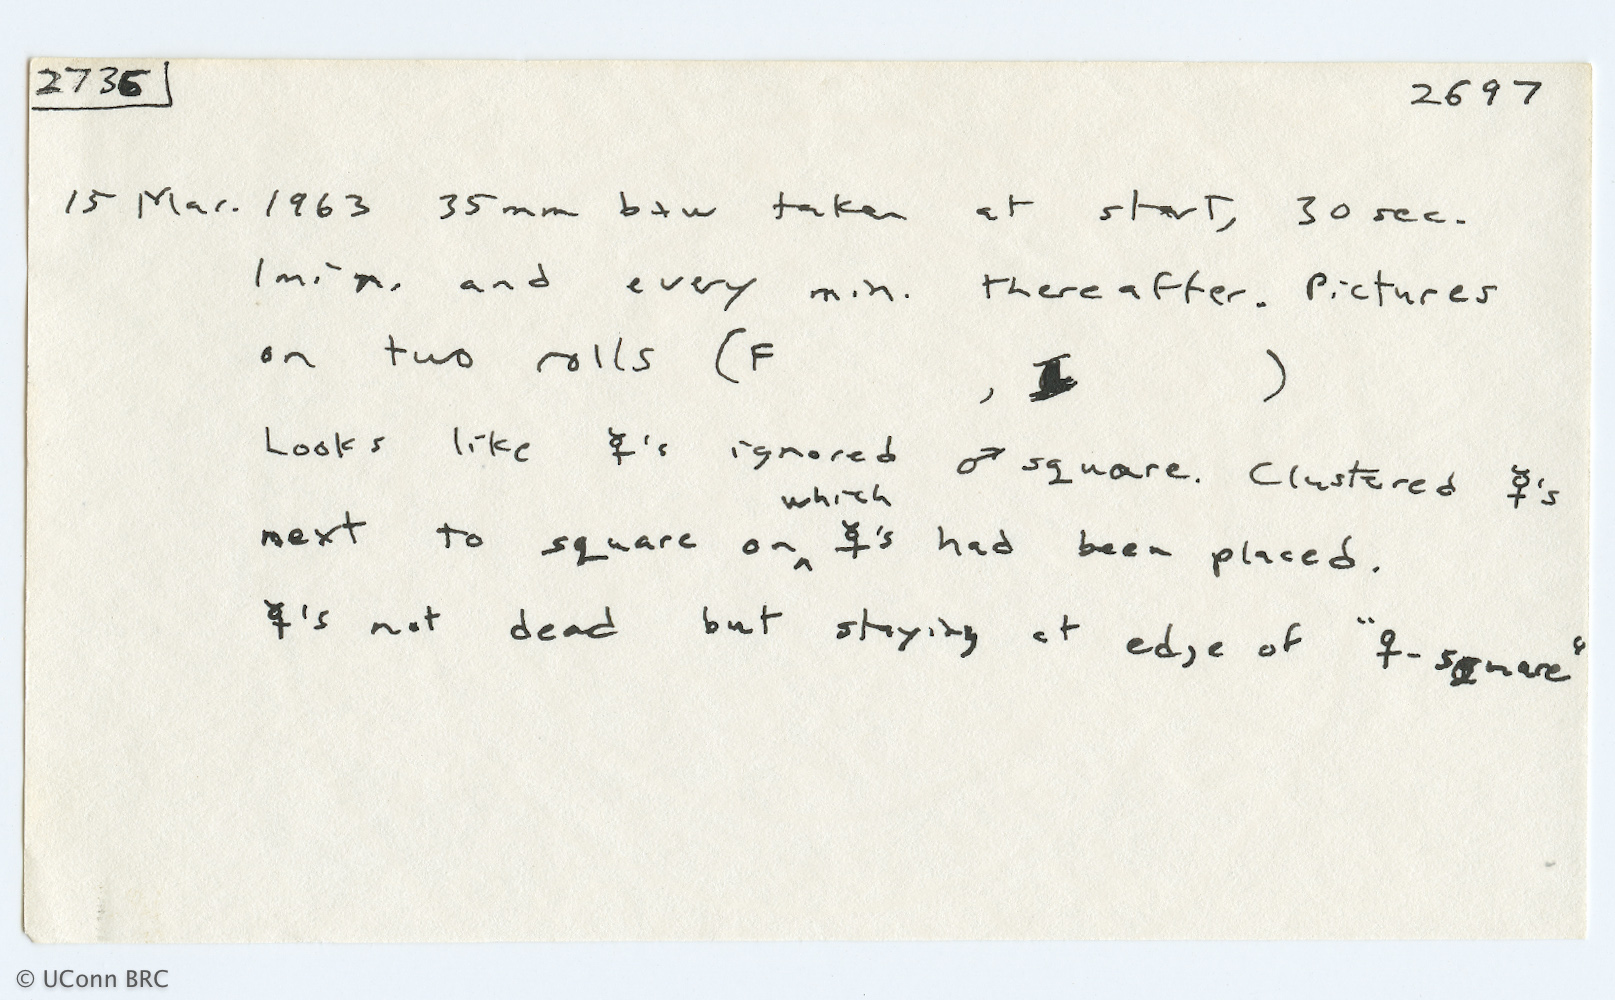 2736 2697
15 Mar. 1963 35mm b+w taken at start, 30 sec.
1 min. and every min. thereafter. Pictures
on two rolls (F , )
Looks like ☿'s ignored ♂ square. Clustered ☿'s
next to square on which ☿'s had been placed.
☿'s not dead but staying at edge of "♀-square"
© UConn BRC